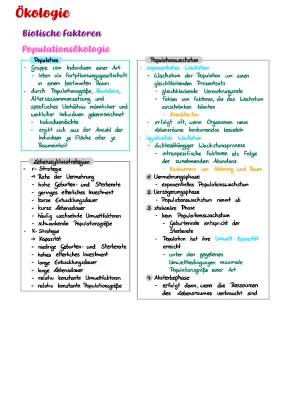 Ökologie
Biotische Faktoren
Populationsökologie
Population
- Gruppe von Individuen einer Art
- leben als Fortpflanzungsgesellschaft
in einem bestimmten Raum
- durch Populationsgröße, Abundanz,
Alterszusammensetzung und
spezifisches Verhältnis männlicher und
weiblicher Individuen gekennzeichnet
- Individuendichte
- ergibt sich aus der Anzahl der
Individuen je Fläche oder je
Raumeinheit
Lebenszyklusstrategien
- r- Strategie
→ Rate der Vermehrung
- hohe Geburten- und Sterberate
- geringes elterliches Investment
- kurze Entwicklungsdauer
- kurze Lebensdauer
- häufig wechselnde Umweltfaktoren
- schwankende Populationsgröße
- K- Strategie
→ Kapazität
- niedrige Geburten- und Sterberate
- hohes elterliches Investment
- lange Entwicklungsdauer
- lange Lebensdauer
- relativ konstante Umweltfaktoren
- relativ konstante Populationsgröße
Populationswachstum
exponentielles Wachstum
- Wachstum der Population um einen
gleichbleibenden Prozentsatz
- gleichbleibende Vermehrungsrate
- Fehlen von Faktoren, die das Wachstum
einschränken könnten
Krankheiten
- erfolgt oft, wenn Organismen neue
Lebensräume konkurrenzlos besiedeln
logistisches Wachstum
- dichteabhängiger Wachstumsprozess
- intraspezifische Faktoren als Folge
der zunehmenden Abundanz
Konkurrenz um Nahrung und Raum
1 Vermehrungsphase
- exponentielles Populationswachstum
2 Verzögerungsphase
- Populationswachstum nimmt ab
3 stationäre Phase
- kein Populationswachstum
- Geburtenrate entspricht der
Sterberate
- Population hat ihre Umwelt Kapazität
erreicht
- unter den gegebenen
Umweltbedingungen maximale
Populationsgröße einer Art
4 Absterbephase
- erfolgt dann, wenn die Ressourcen
des Lebensraumes verbraucht sind